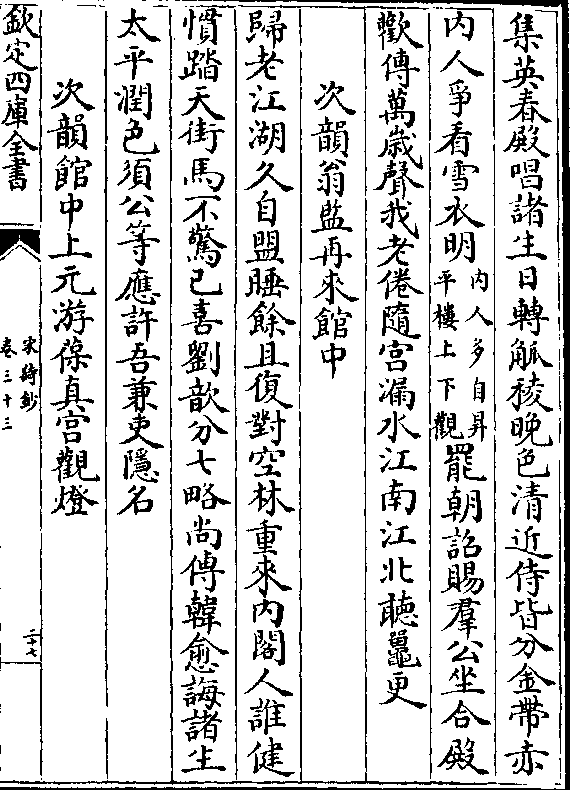 集英春殿唱諸生日轉觚稜晚色清近侍皆分金帶赤
内人爭看雪衣明内人多自昇平樓上下觀罷朝詔賜羣公坐合殿
歡傳萬歲聲我老倦隨宫漏水江南江北聽鼉更
次韻翁監再來館中
歸老江湖久自盟睡餘且復對空林重來内閣人誰健
慣踏天街馬不驚已喜劉歆分七略尚傳韓愈誨諸生
太平潤色須公等應許吾兼吏隱名
次韻館中上元游葆真宫觀燈
欽定四庫全書
宋詩鈔
卷三十三
二十七